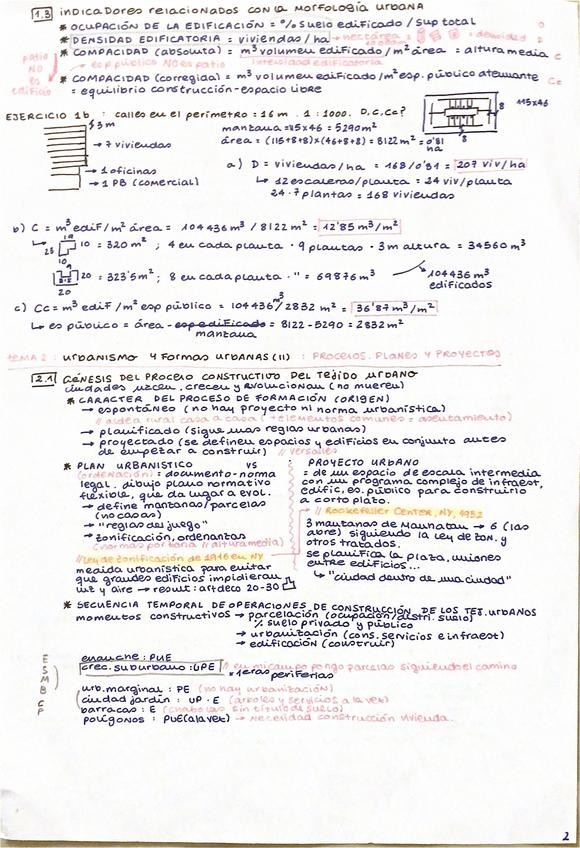 1.3 indicadores relacionados con la morfología urbana
* OCUPACIÓN DE LA EDIFICACIÓN = % suelo edificado / sup total
* DENSIDAD EDIFICATORIA = viviendas / ha
* COMPACIDAD (absoluta) = m³ volumen edificado / m² área = altura media C
patio NO es edificio
esp público NO es patio
intensidad edificatoria
* COMPACIDAD (corregida) = m³ volumen edificado / m² esp. público atenuante Cc
= equilibrio construcción-espacio libre
EJERCICIO 1b : calles en el perímetro = 16 m . 1 : 1000. D, C, Cc?
115x46
8
8
3 m
→ 7 viviendas
→ 1 oficinas
→ 1 PB (comercial)
manzana = 115 x 46 = 5290 m²
área = (115+8+8) x (46+8+8) = 8122 m² = 0'81 ha
a) D = viviendas / ha = 168 / 0'81 = 207 viv/ha
↳ 12 escaleras/planta = 24 viv/planta
24 · 7 plantas = 168 viviendas
b) C = m³ edif / m² área = 104436 m³ / 8122 m² = 12'85 m³/m²
= 320 m² ; 4 en cada planta · 9 plantas · 3 m altura = 34560 m³
= 323'5 m² ; 8 en cada planta · " = 69876 m³
→ 104436 m³ edificados
c) Cc = m³ edif / m² esp público = 104436 m³ / 2832 m² = 36'87 m³/m²
↳ es público = área - esp edificado = 8122 - 5290 = 2832 m²
manzana
TEMA 2 : URBANISMO Y FORMAS URBANAS (II) : PROCESOS, PLANES Y PROYECTOS
2.1 GÉNESIS DEL PROCESO CONSTRUCTIVO DEL TEJIDO URBANO
ciudades nacen, crecen y evolucionan (no mueren)
* CARACTER DEL PROCESO DE FORMACIÓN (ORIGEN)
→ espontáneo (no hay proyecto ni norma urbanística)
// aldea rural casa a casa (+ elementos comunes = asentamiento)
→ planificado (sigue unas reglas urbanas)
→ proyectado (se definen espacios y edificios en conjunto antes
de empezar a construir) // Versalles
* PLAN URBANISTICO VS
(ordenación) = documento-norma
legal. dibujo plano normativo
flexible, que da lugar a evol.
→ define manzanas/parcelas
(no casas)
→ "reglas del juego"
→ zonificación, ordenanzas
(normas por zona // altura media)
// Ley de zonificación de 1916 en NY
medida urbanística para evitar
que grandes edificios impidieran
luz y aire → result: art deco 20-30
PROYECTO URBANO
= de un espacio de escala intermedia
con un programa complejo de infraest,
edific, es. público para construirlo
a corto plazo.
// Rockefeller Center, NY, 1932
3 manzanas de Manhatan → 6 (las
abre) siguiendo la Ley de zon. y
otros tratados.
se planifica la plaza, uniones
entre edificios...
↳ "ciudad dentro de una ciudad"
* SECUENCIA TEMPORAL DE OPERACIONES DE CONSTRUCCIÓN DE LOS TEJ. URBANOS
momentos constructivos → parcelación (ocupación/distri. suelo)
% suelo privado y público
→ urbanización (cons. servicios e infraest)
→ edificación (construir)
E
S
M
B
C
P
ensanche : PUE
crec. suburbano : UPE // en mi campo pongo parcelas siguiendo el camino
= 1eras periferias
urb. marginal : PE (no hay urbanización)
ciudad jardín : UP · E (árboles y servicios a la vez)
barracas : E (chabolas sin título de suelo)
polígonos : PUE (a la vez) → necesidad construcción vivienda.
2